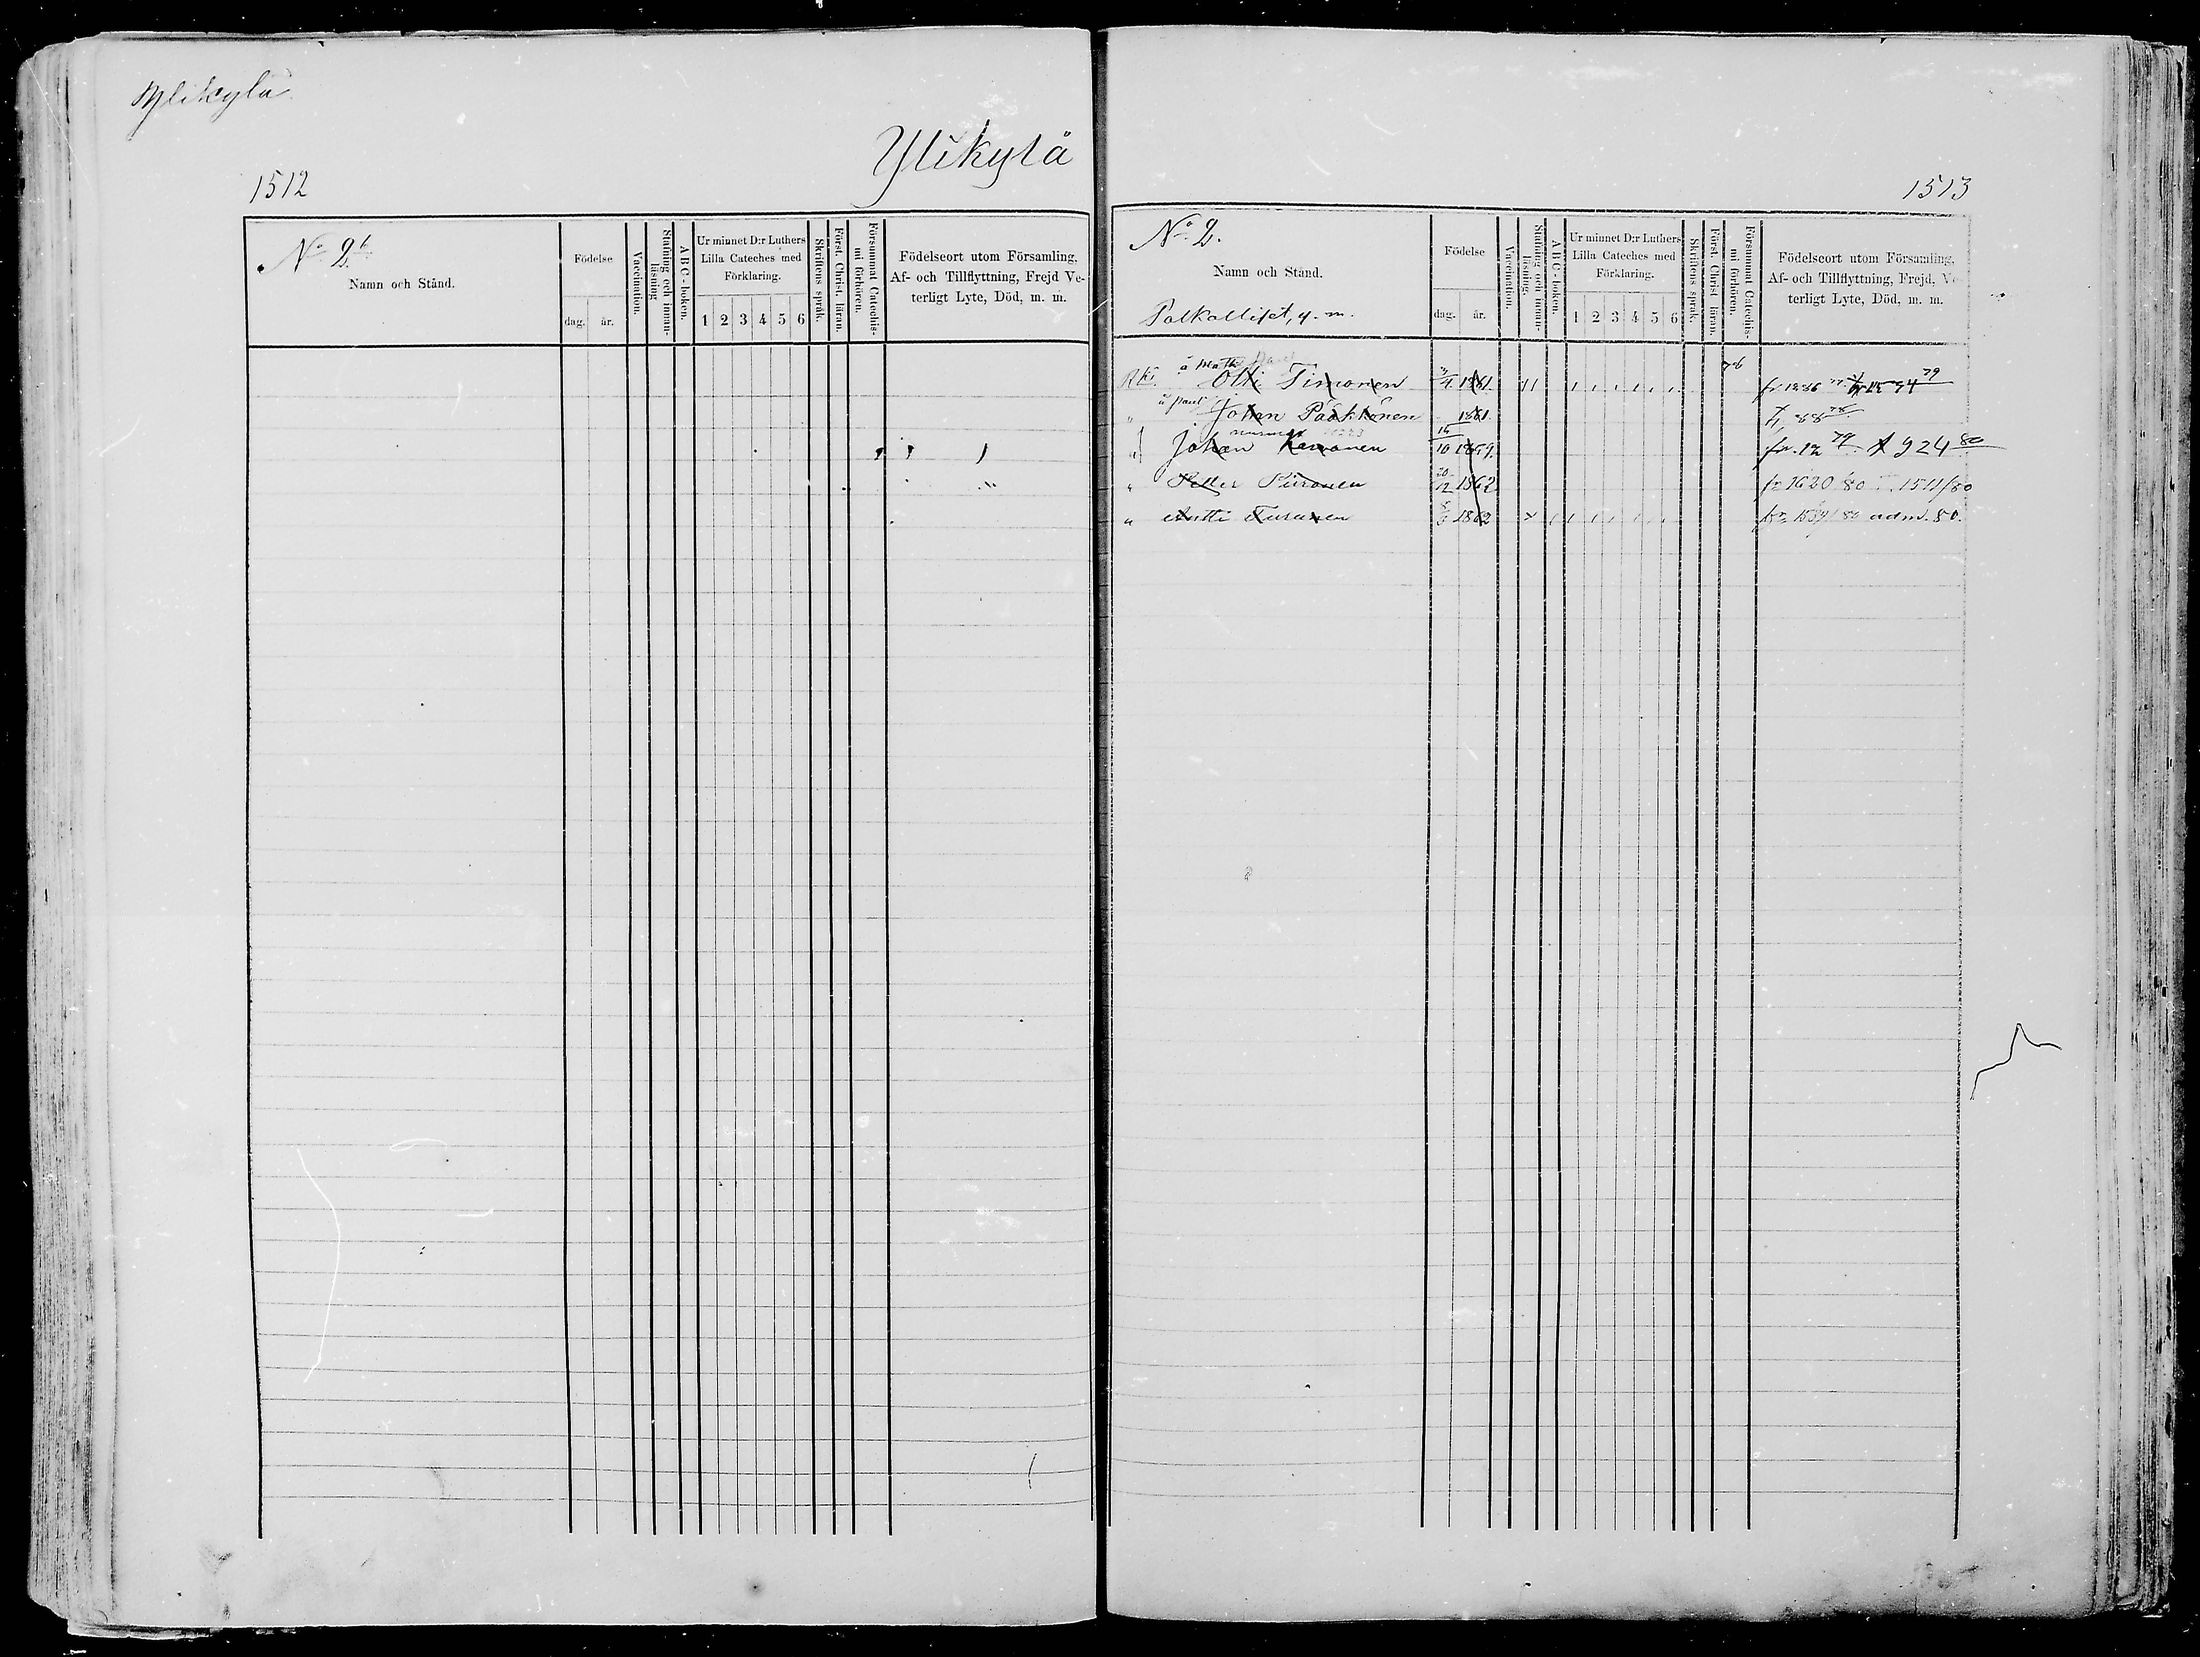 Ylikylä
Ylikylä
1512
No 2.
Namn och Stånd.
Födelse
dag. år.
Vaccination.
Stafning och innan-
läsning
ABC-boken.
Ur minnet D:r Luthers
Lilla Cateches med
Förklaring.
1 2 3 4 5 6
Skriftens språk.
Först. Christ. läran.
Försummat Catechis-
mi förhören.
Födelseort utom Församling,
Af- och Tillflyttning, Frejd Ve-
terligt Lyte, Död, m. m.
1513
No 2.
Namn och Stånd.
Palkolliset, y. m.
Födelse
dag. år.
Vaccination.
Stafning och innan-
läsning.
ABC-boken.
Ur minnet D:r Luthers
Lilla Cateches med
Förklaring.
1 2 3 4 5 6
Skriftens språk.
Först. Christ läran.
Försummat Catechis-
mi förhören.
Födelseort utom Församling,
Af- och Tillflyttning, Frejd, Ve-
terligt Lyte, Död, m. m.
Olli Timonen 1861 79
Johan Pääkkönen 1861
" Johan 10 1859 fr. 12 79 924 80
" Petter Piironen 12 1862 fr 1620/80 1511/80
" Antti Turunen 1862 adm. 80.